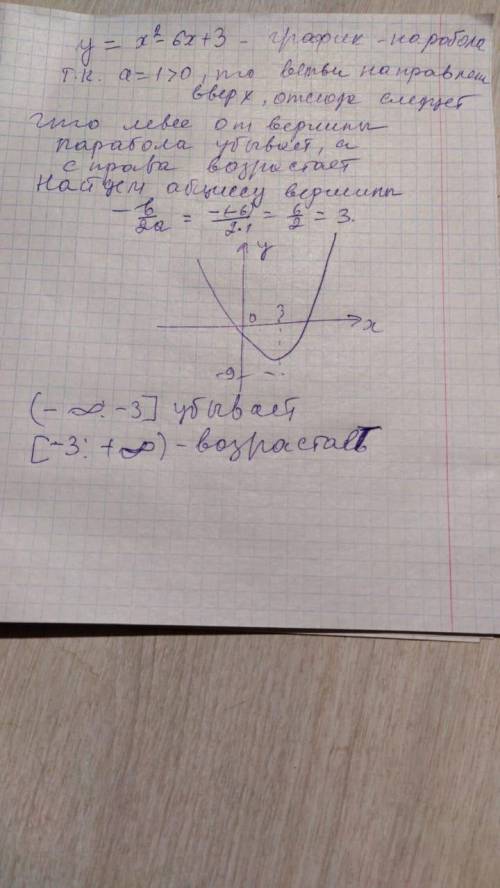 y = x² - 6x + 3 - график - парабола
т.к. a = 1 > 0, то ветви направлены
вверх, отсюда следует
что левее от вершины
парабола убывает, а
справа возрастает
Найдем абциссу вершины
-b/2a = -(-6)/2·1 = 6/2 = 3.
y
0 3
x
-9
(-∞: -3] убывает
[-3: +∞) - возрастает